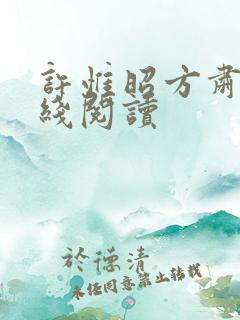 許惟昭方肅
綫閱讀
於德清
未經同意禁止轉載